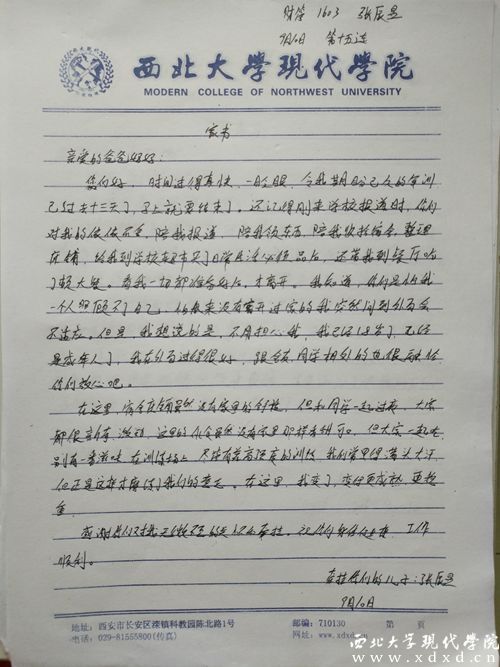 财管1603 张辰昱
9月10日 第十五连
西北大学现代学院
MODERN COLLEGE OF NORTHWEST UNIVERSITY
家书
亲爱的爸爸妈妈:
您们好,时间过得真快,一眨眼,令我期盼已久的军训
已过去十三天了,马上就要结束了。还记得刚来学校报道时,你们
对我的依依不舍,陪我报道,陪我领东西,陪我收拾宿舍,整理
床铺,给我到学校超市买了日常生活必须品后,还带我到餐厅吃
了顿大餐。看我一切都准备好后,才离开。我知道,你们是怕我
一个人照顾不了自己,怕从来没有离开过家的我突然间到外面会
不适应。但是,我想说的是,不用担心我,我已经18岁了,已经
是成年人了,我在外面过得很好,跟舍友同学相处的也很融洽
你们放心吧。
在这里,宿舍床铺虽然没有家里的舒服,但和同学一起过夜,大家
都很高兴,激动,这里的伙食虽然没有家里那样香甜可口,但大家一起吃
别有一番滋味,在训练场上,尽管有着高强度的训练,我们常累得满头大汗
但正是这样才磨练了我们的意志。在这里,我变了,变得更成熟,更稳
重。
感谢你们对我无微不至的关心和牵挂。祝你们身体健康,工作
顺利。
牵挂你们的儿子:张辰昱
9月10日
地址:西安市长安区滦镇科教园陈北路1号
邮编:710130
第 页
电话:029-81555800(传真)
网址:www.xdxd.cn
西北大学现代学院
www.xdxd.cn